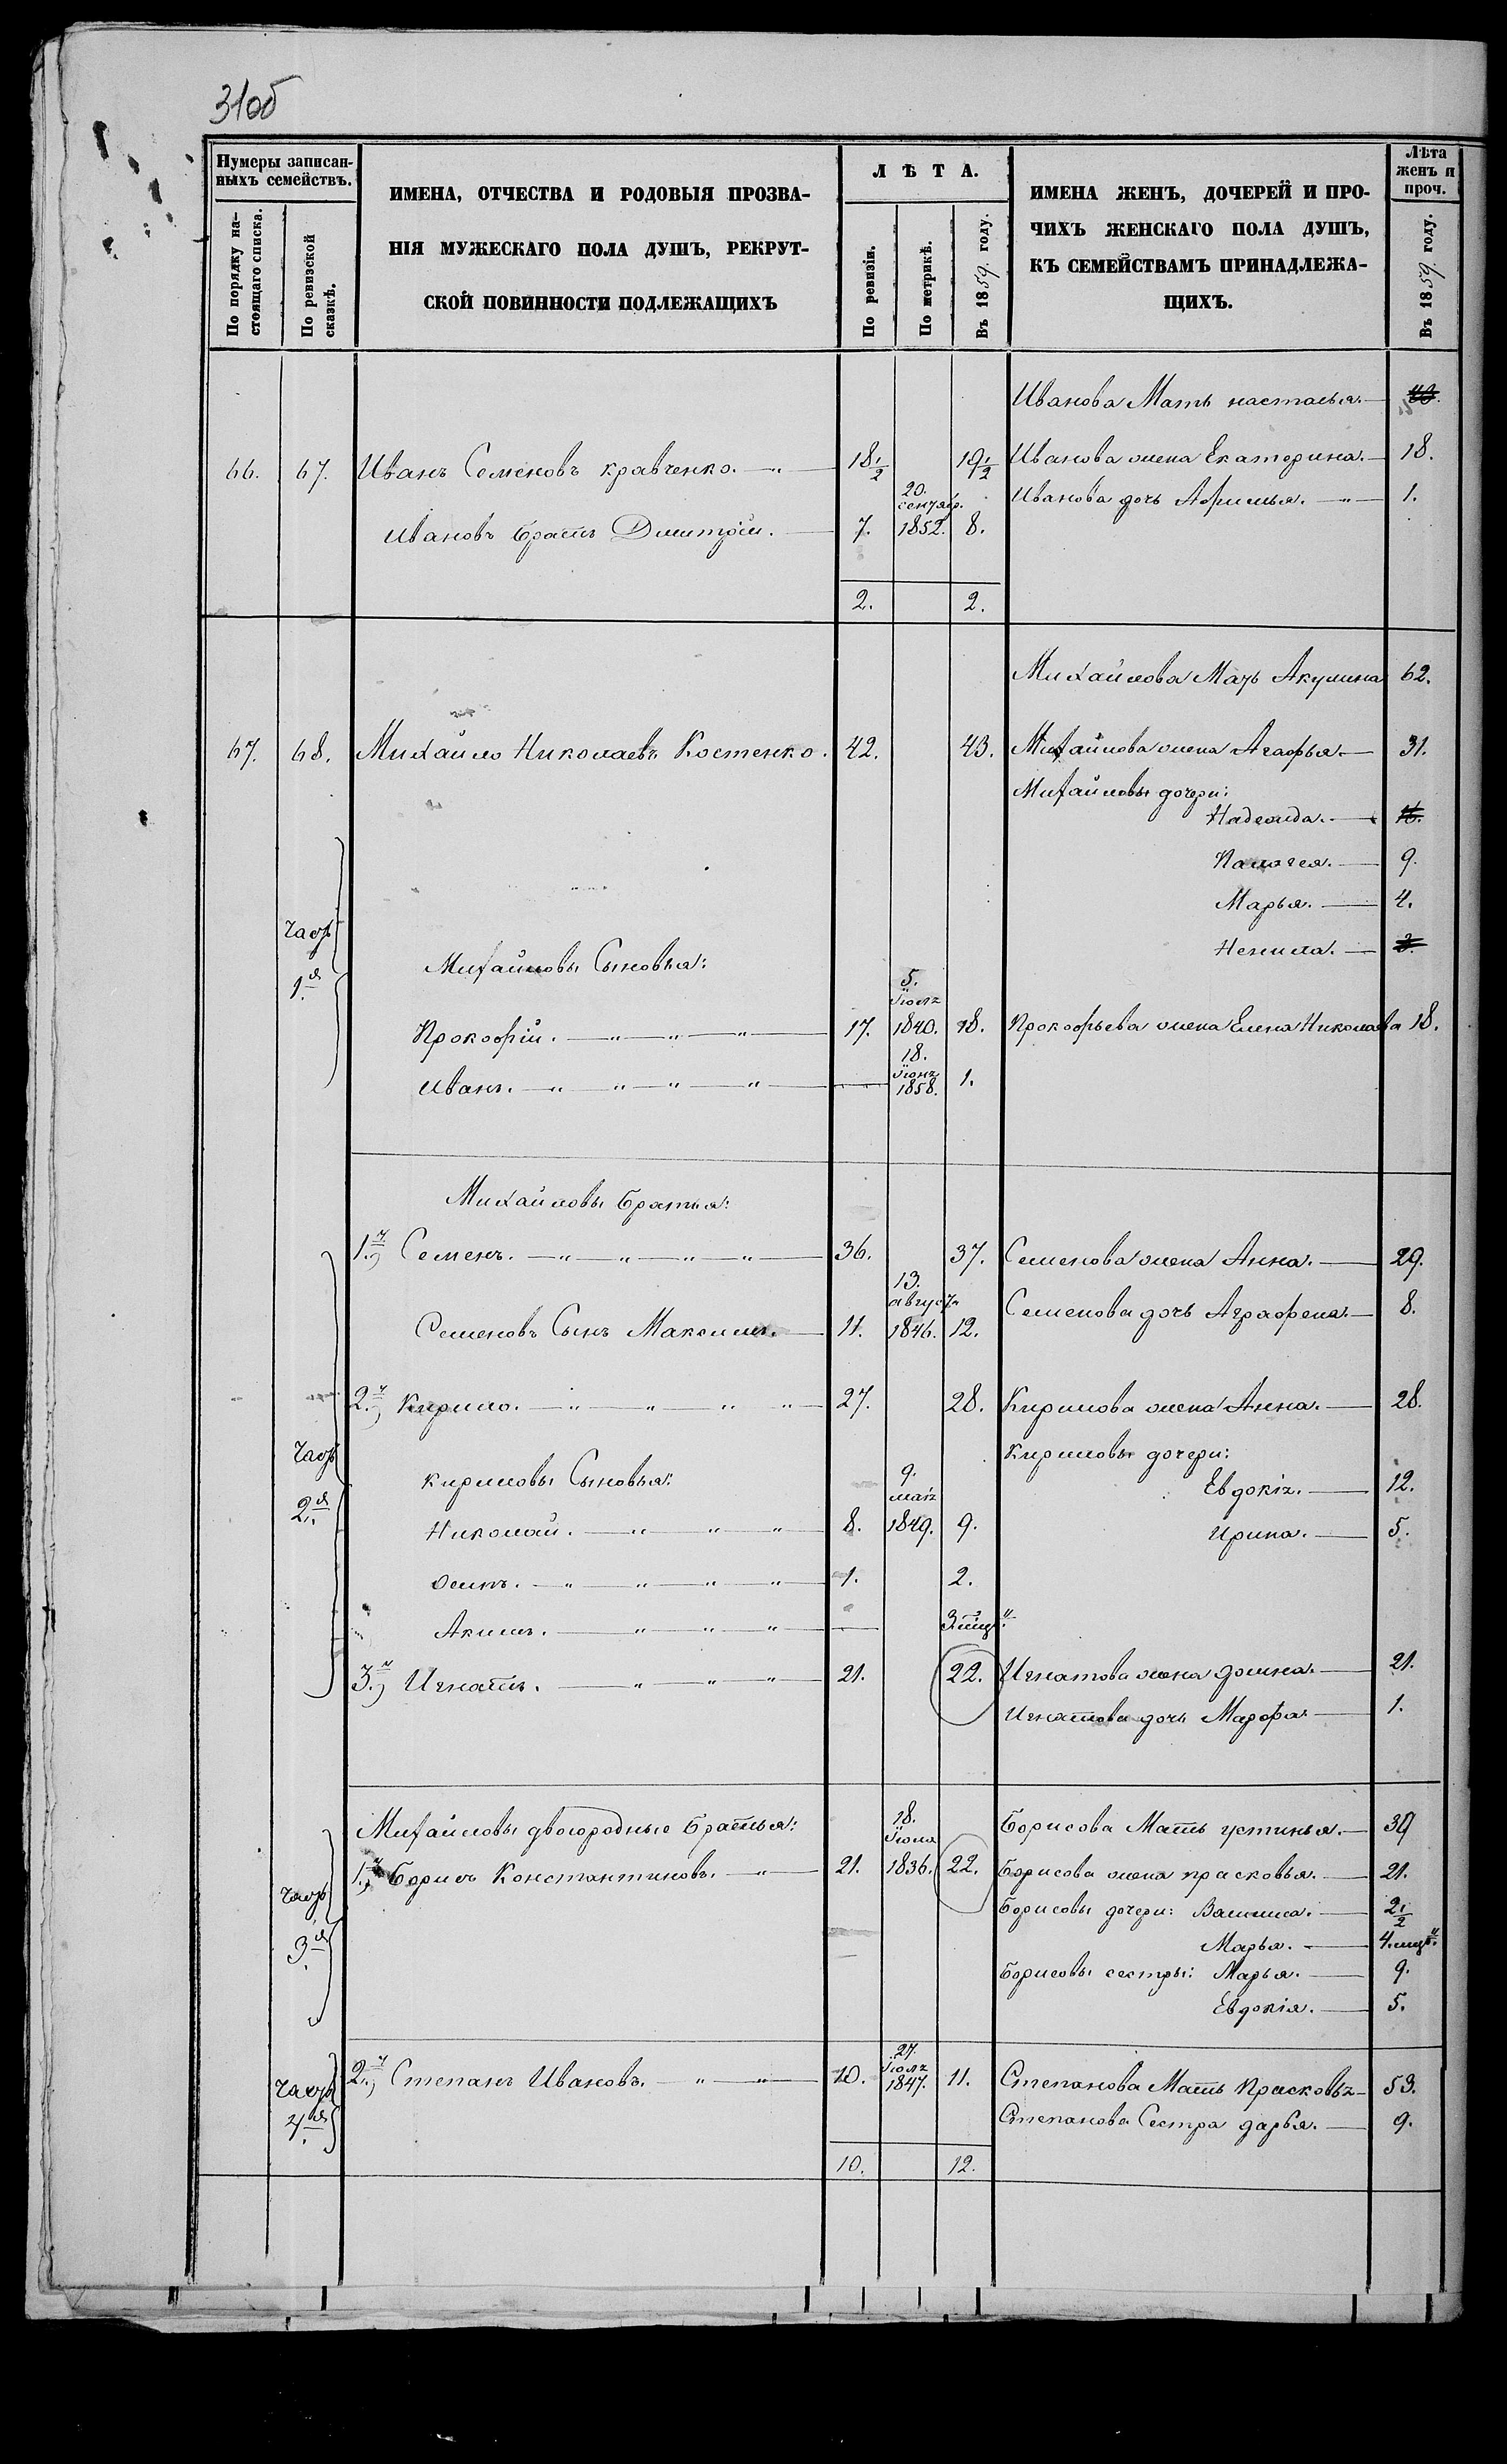 31об
Нумеры записан-
ныхъ семействъ.
По порядку на-
стоящаго списка.
По ревизской
сказкѣ.
ИМЕНА, ОТЧЕСТВА И РОДОВЫЯ ПРОЗВА-
НІЯ МУЖЕСКАГО ПОЛА ДУШЪ, РЕКРУТ-
СКОЙ ПОВИННОСТИ ПОДЛЕЖАЩИХЪ
ЛѢТА.
По ревизіи.
По метрикѣ.
Въ 1859. году.
ИМЕНА ЖЕНЪ, ДОЧЕРЕЙ И ПРО-
ЧИХЪ ЖЕНСКАГО ПОЛА ДУШЪ,
КЪ СЕМЕЙСТВАМЪ ПРИНАДЛЕЖА-
ЩИХЪ.
Лѣта
женъ и
проч.
Въ 1859. году.
Иванова Мать настасья.
66. 67. Иванъ Семеновъ кравченко. 18 1/2 19 1/2 Иванова жена Екатерина. 18.
Иванова дочь 1.
Ивановъ братъ Дмитрій. 7. 20. сентяб. 1852. 8.
2. 2.
Михайлова Мать Акулина 62.
67. 68. Михайло Николаевъ Костенко. 42. 43. Михайлова жена Агафья. 31.
Михайловы дочери:
Надежда. 16.
Палагея. 9.
Марья. 4.
Ненила. 3.
часть
1.я
Михайловы Сыновья:
Прокофій. 17. 5. Іюля 1840. 18. Прокофьева жена Елена Николаева 18.
Иванъ. 18. Іюня 1858. 1.
Михайловы братья:
1.й Семенъ. 36. 37. Семенова жена Анна. 29.
Семенова дочь Аграфена. 8.
Семеновъ Сынъ Максимъ. 11. 13. августа 1846. 12.
2.й Кирило. 27. 28. Кирилова жена Анна. 28.
Кириловы дочери:
часть
2.я
Кириловы Сыновья:
Евдокія. 12.
Николай. 8. 9. маія 1849. 9. Ирина. 5.
Осипъ. 1. 2.
Акимъ. 3. мцъ.
3.й Игнатъ. 21. 22. Игнатова жена домна. 21.
Игнатова дочь Марфа. 1.
Михайловы двоюродные братья:
Борисова Мать устинья. 39
1.й Борисъ Константиновъ. 21. 18. Іюля 1836. 22. Борисова жена прасковья. 21.
часть
3.я
Борисовы дочери: Василиса. 2 1/2
Марья. 4. мцъ.
Борисовы сестры: Марья. 9.
Евдокія. 5.
часть
4.я
2.й Степанъ Ивановъ. 10. 27. Іюля 1847. 11. Степанова Мать Прасковья 53.
Степанова Сестра дарья. 9.
10. 12.